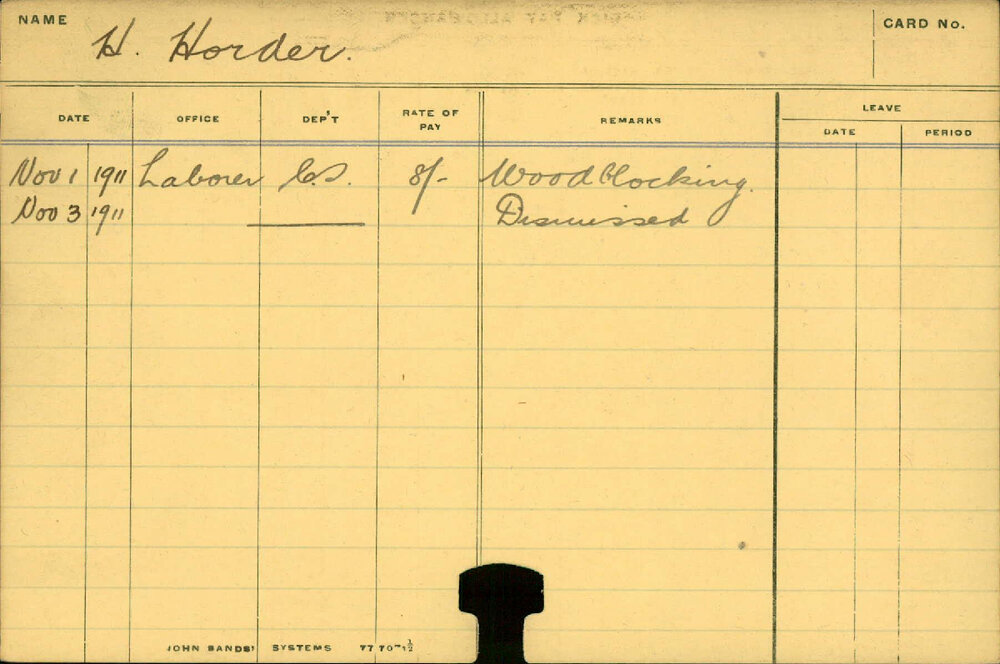 NAME H. Horder. CARD No.
DATE OFFICE DEP'T RATE OF PAY REMARKS LEAVE
DATE PERIOD
Nov 1 1911 Laborer C.S. 8/- Woodblocking.
Nov 3 1911 Dismissed
JOHN SANDS' SYSTEMS